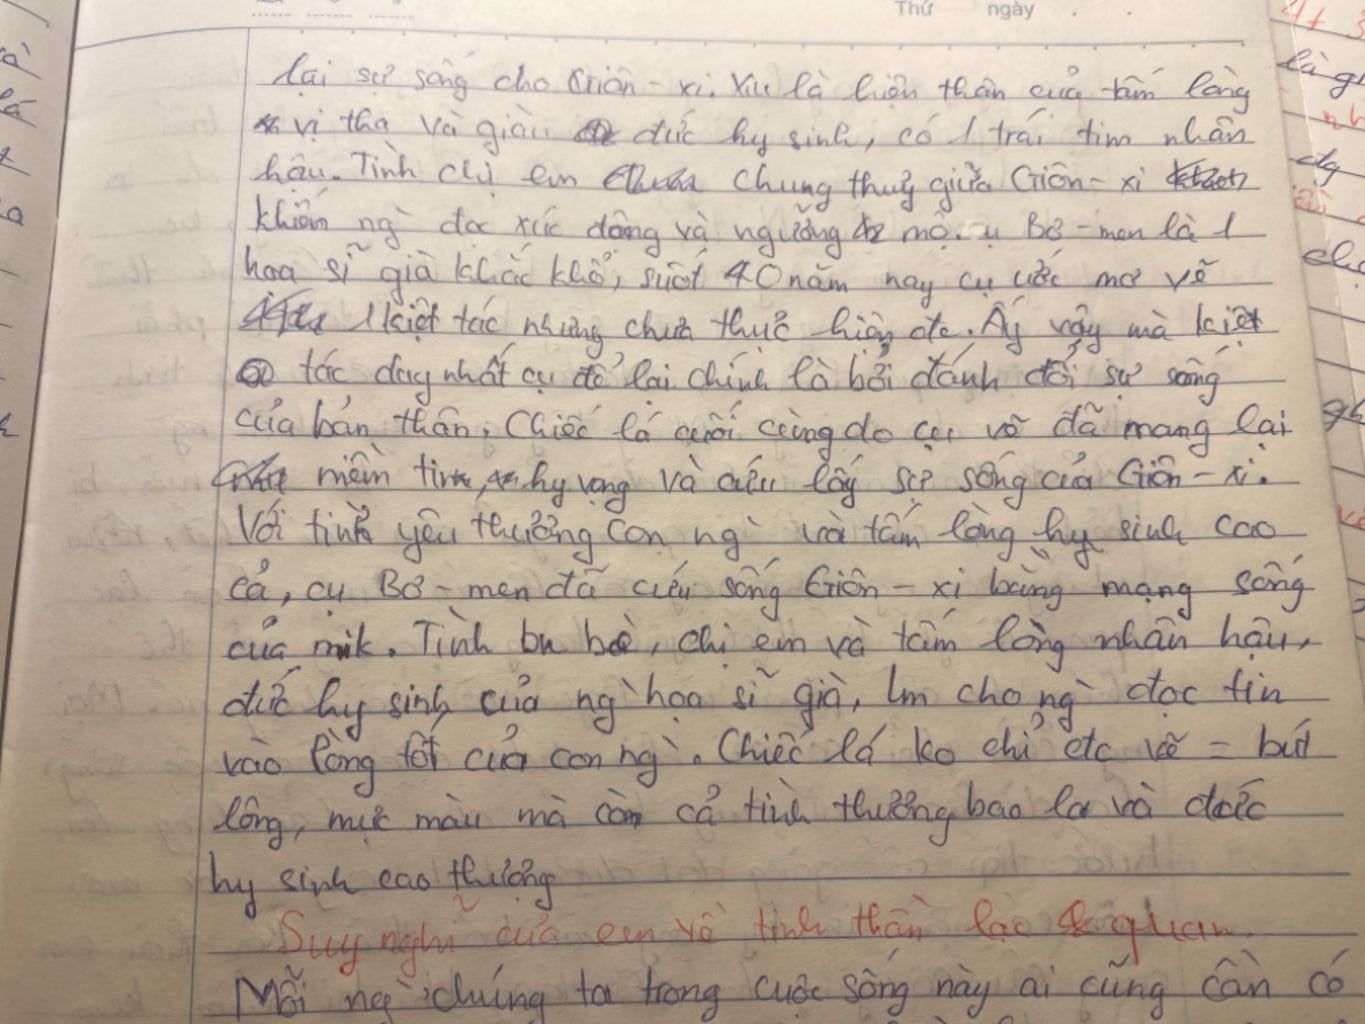 Thứ ngày
lại sự sống cho Giôn-xi. Xiu là hiện thân của tấm lòng
vị tha và giàu đức hy sinh, có 1 trái tim nhân
hậu. Tình chị em chung thuỷ giữa Giôn-xi
khiến ng` đọc xúc động và ngưỡng mộ. cụ Bơ-men là 1
hoạ sĩ già khắc khổ, suốt 40 năm nay cụ ước mơ vẽ
1 kiệt tác nhưng chưa thực hiện đc. Ấy vậy mà kiệt
tác duy nhất cụ để lại chính là bởi đánh đổi sự sống
của bản thân. Chiếc lá cuối cùng do cụ vẽ đã mang lại
niềm tin, hy vọng và cứu lấy sự sống của Giôn-xi.
Với tình yêu thương con ng` và tấm lòng hy sinh cao
cả, cụ Bơ-men đã cứu sống Giôn-xi bằng mạng sống
của mik. Tình bn bè, chị em và tấm lòng nhân hậu,
đức hy sinh của ng` hoạ sĩ già, lm cho ng` đọc tin
vào lòng tốt của con ng`. Chiếc lá ko chỉ đc vẽ = bút
lông, mực màu mà còn cả tình thương bao la và đức
hy sinh cao thượng
Suy nghĩ của em về tinh thần lạc quan.
Mỗi ng` chúng ta trong cuộc sống này ai cũng cần có